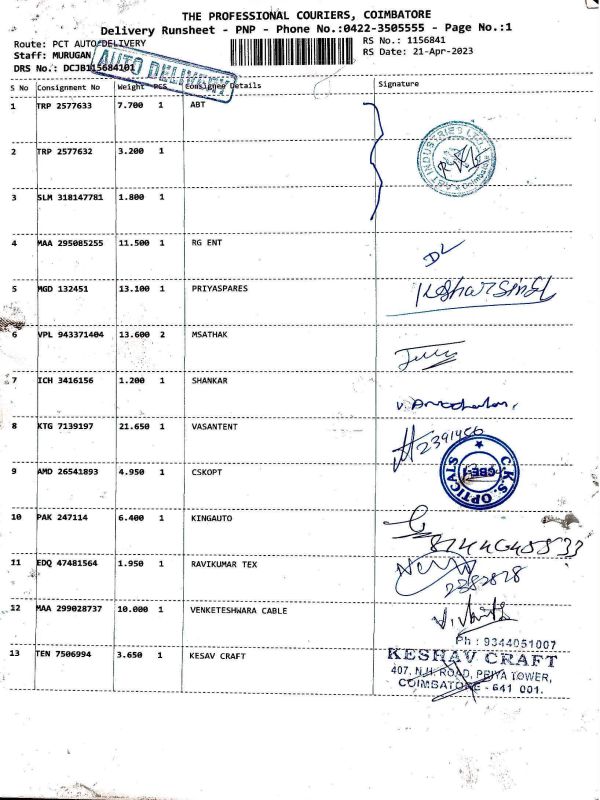 THE PROFESSIONAL COURIERS, COIMBATORE
Delivery Runsheet - PNP - Phone No.:0422-3505555 - Page No.:1
Route: PCT AUTO DELIVERY
RS No.: 1156841
Staff: MURUGAN
RS Date: 21-Apr-2023
DRS No.: DCJB115684101
AUTO DELIVERY
S No Consignment No Weight PCS Consignee Details Signature
1 TRP 2577633 7.700 1 ABT
2 TRP 2577632 3.200 1
ABT INDUSTRIES LTD. Coimbatore
3 SLM 318147781 1.800 1
4 MAA 295085255 11.500 1 RG ENT
5 MGD 132451 13.100 1 PRIYASPARES
Kesharsingh
6 VPL 943371404 13.600 2 MSATHAK
7 ICH 3416156 1.200 1 SHANKAR
8 KTG 7139197 21.650 1 VASANTENT
2391456
9 AMD 26541893 4.950 1 CSKOPT
C.K.S. OPTICALS CBE-1
10 PAK 247114 6.400 1 KINGAUTO
11 EDQ 47481564 1.950 1 RAVIKUMAR TEX
2282828
12 MAA 299028737 10.000 1 VENKETESHWARA CABLE
Ph : 9344051007
13 TEN 7506994 3.650 1 KESAV CRAFT
KESHAV CRAFT
407, N.H. ROAD, PRIYA TOWER,
COIMBATORE - 641 001.